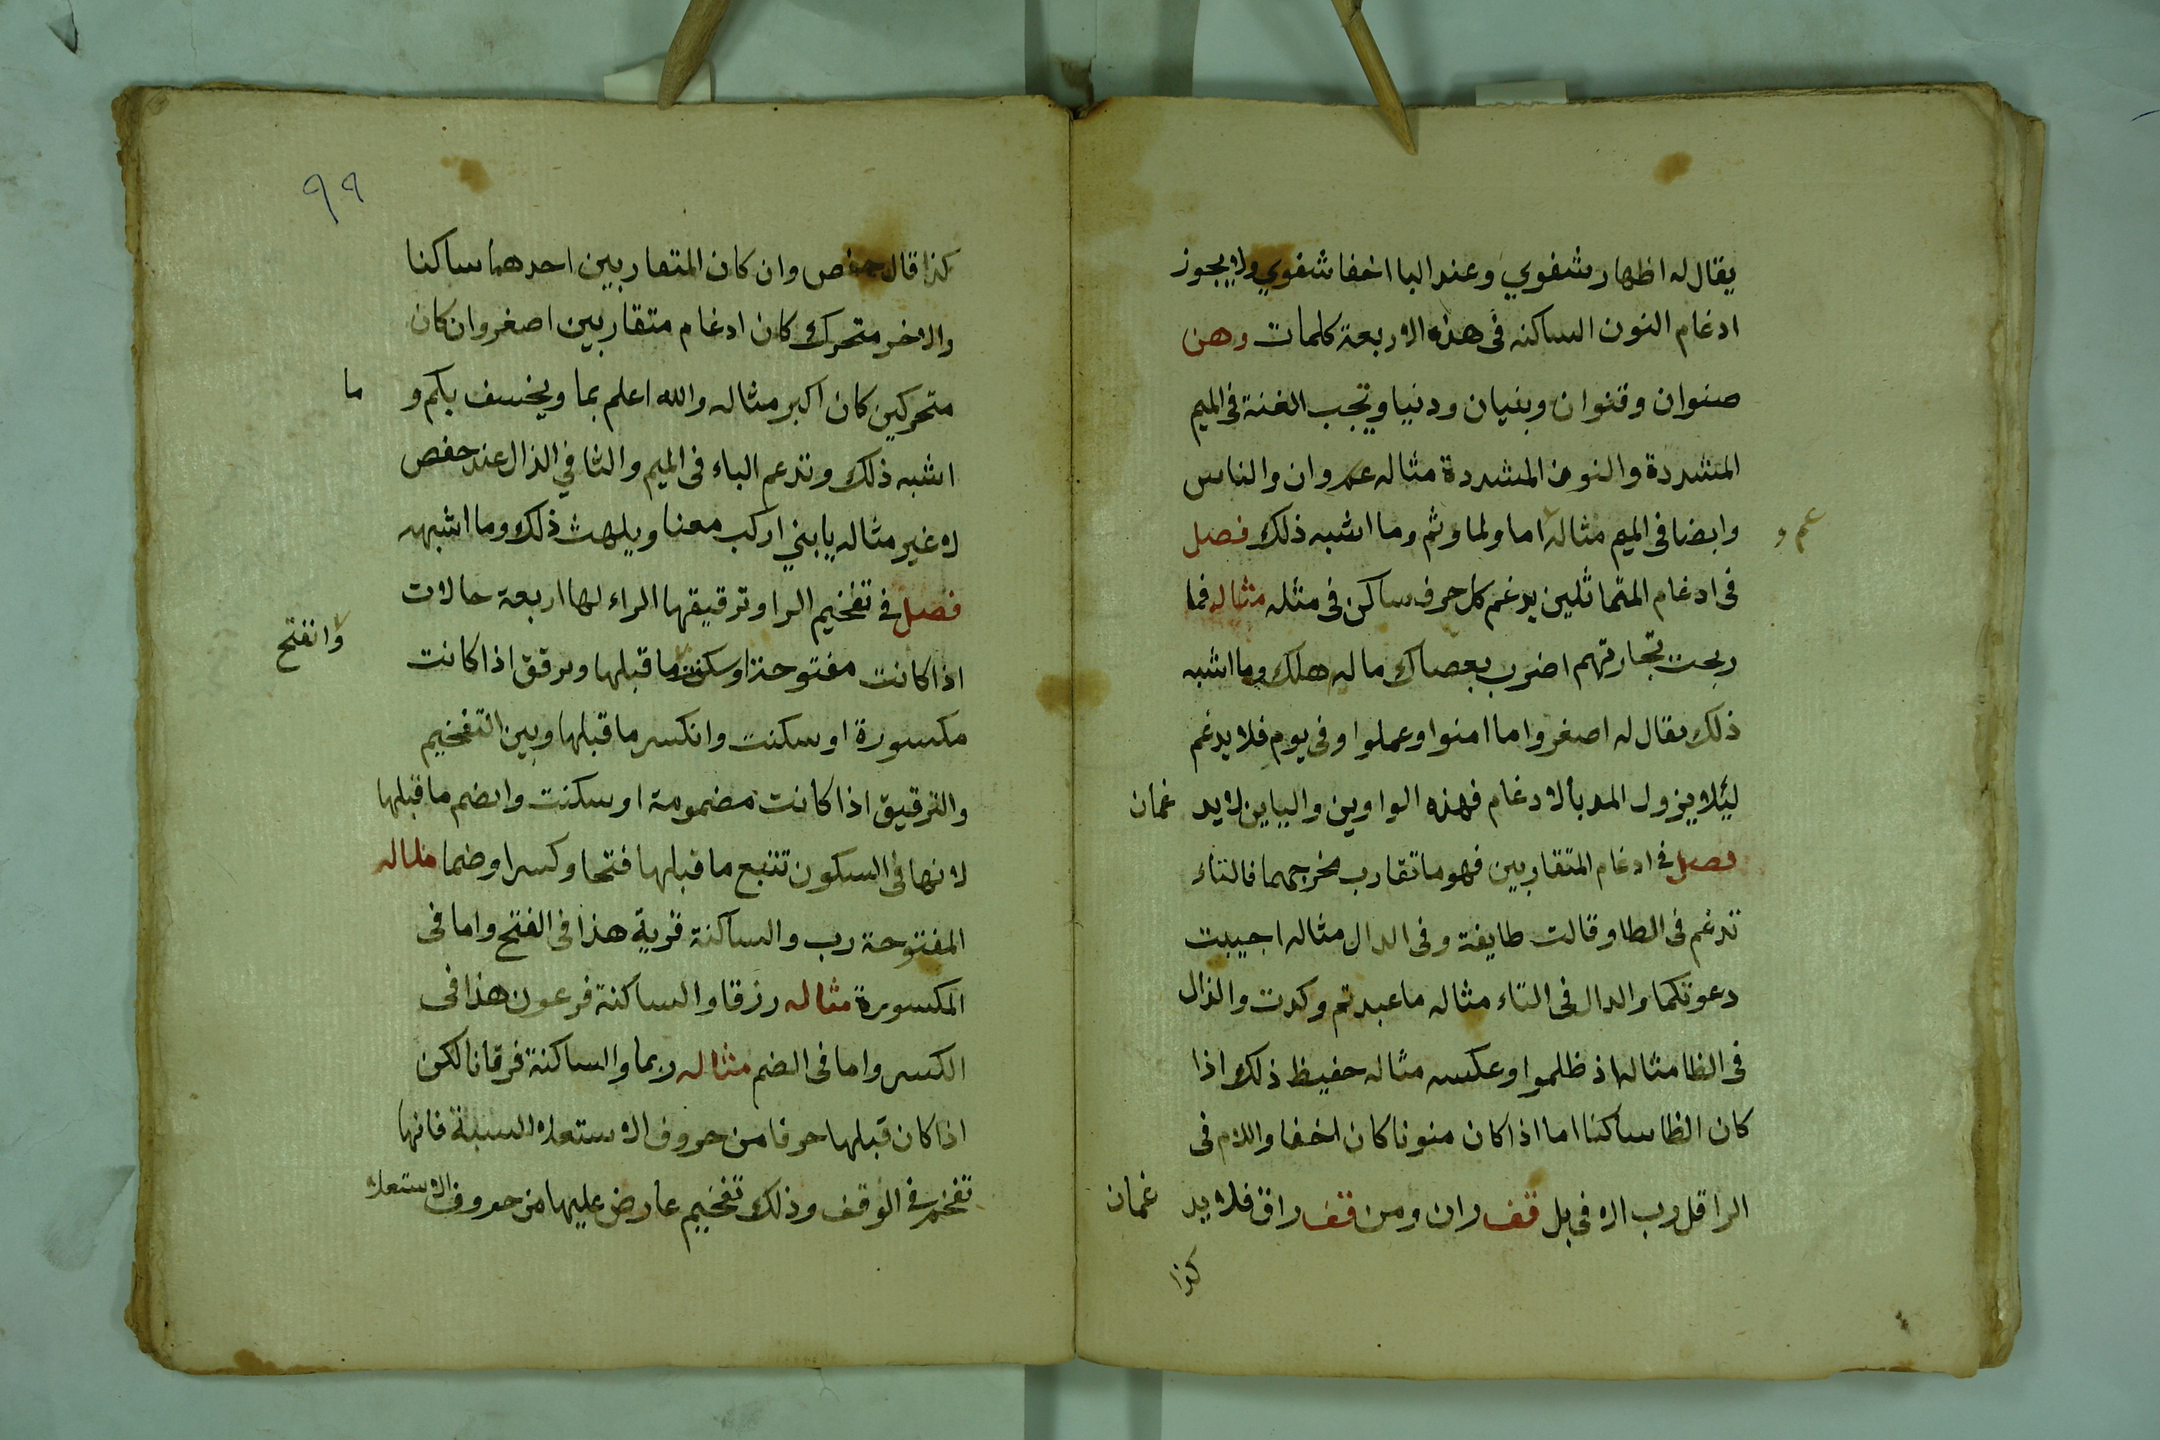 يقال له اظهار شفوي وعند البا اخفا شفوي ولا يجوز
ادغام النون الساكنه فى هذه الاربعة كلمات وهن
صنوان وقنوان وبنيان ودنيا وتجب الغنة فى الميم
المشددة والنون المشددة مثاله عم وان والناس
وايضا فى الميم مثاله اما ولما وثم وما اشبه ذلك فصل
عم و
فى ادغام المتماثلين يدغم كل حرف ساكن فى مثله مثاله فما
ربحت تجارتهم اضرب بعصاك ماليه هلك وما اشبه
ذلك يقال له اصغر واما امنوا وعملوا وفى يوم فلا يدغم
ليئلا يزول المد بألادغام فهذه الواوين والياين لا يد غمان
فصل فى ادغام المتقاربين فهو ما تقارب مخرجهما فالتاء
تدغم فى الطا وقالت طايفة وفى الدال مثاله اجيبت
دعوتكما والدال فى التاء مثاله ما عبدتم وكدت والذال
فى الظا مثاله اذ ظلموا وعكسه مثاله حفيظ ذلك اذا
كان الظا ساكنا اما اذا كان منونا كان اخفا واللام فى
الرا قل رب الا فى بل قف ران ومن قف راق فلا يد غمان
كذا
٩٩
كذا قال حفص وان كان المتقاربين احدهما ساكنا
والاخر متحرك كان ادغام متقاربين اصغر وان كان
متحركين كان اكبر مثاله والله اعلم بما ويخسف بكم و ما
اشبه ذلك وتدغم الباء فى الميم والثا في الذال عند حفص
لا غير مثاله يا بني اركب معنا ويلهث ذلك وما اشبهه
فصل في تفخيم الرا وترقيقها الراء لها اربعة حالات
اذا كانت مفتوحة او سكنت ما قبلها وترقق اذا كانت
وانفتح
مكسورة او سكنت وانكسر ما قبلها وبين التفخيم
والترقيق اذا كانت مضمومة او سكنت وانضم ما قبلها
لانها فى السكون تتبع ما قبلها فتحا وكسرا وضما مثاله
المفتوحة رب والساكنة قرية هذا فى الفتح واما فى
المكسورة مثاله رزقا والساكنة فرعون هذا فى
الكسر واما فى الضم مثاله ربما والساكنة فرقانا لكن
اذا كان قبلها حرفا من حروف الاستعلا السبعة فانها
تفخم في الوقف وذلك تفخيم عارض عليها من حروف الاستعلا